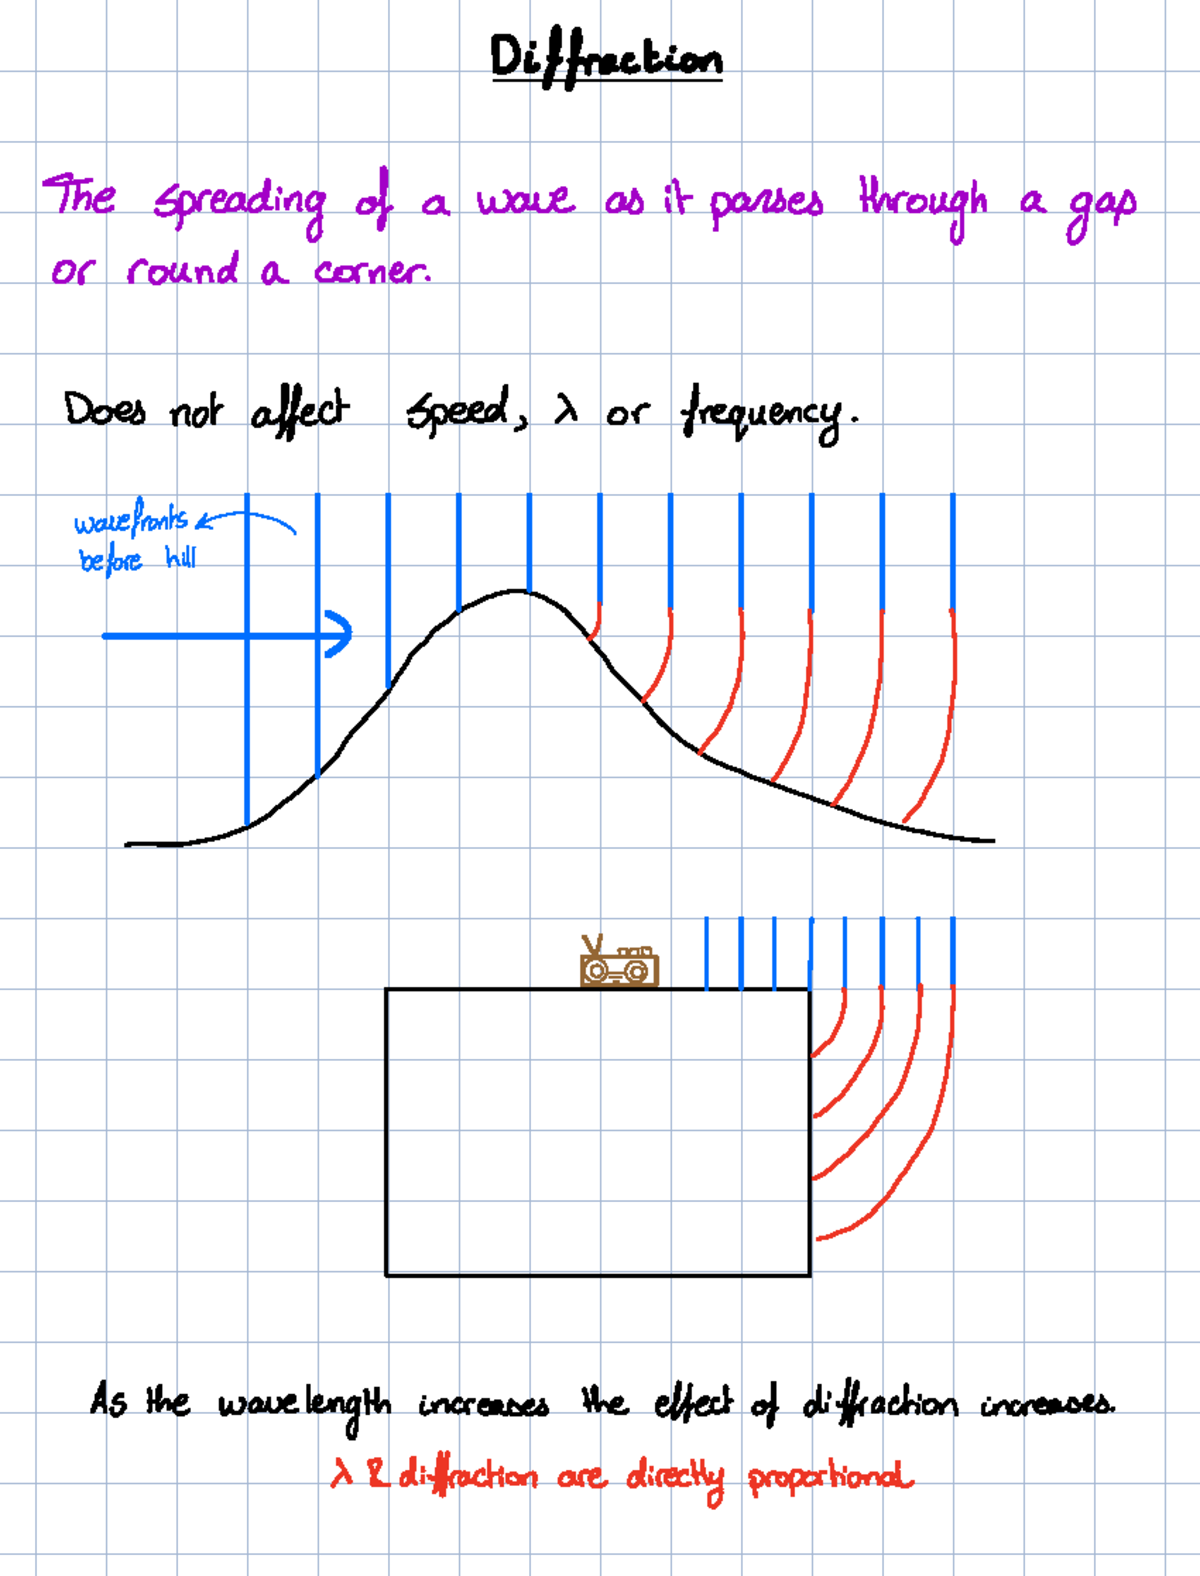 Diffraction
The spreading of a wave as it passes through a gap
or round a corner.
Does not affect speed, λ or frequency.
wavefronts
before hill
As the wavelength increases the effect of diffraction increases.
λ & diffraction are directly proportional